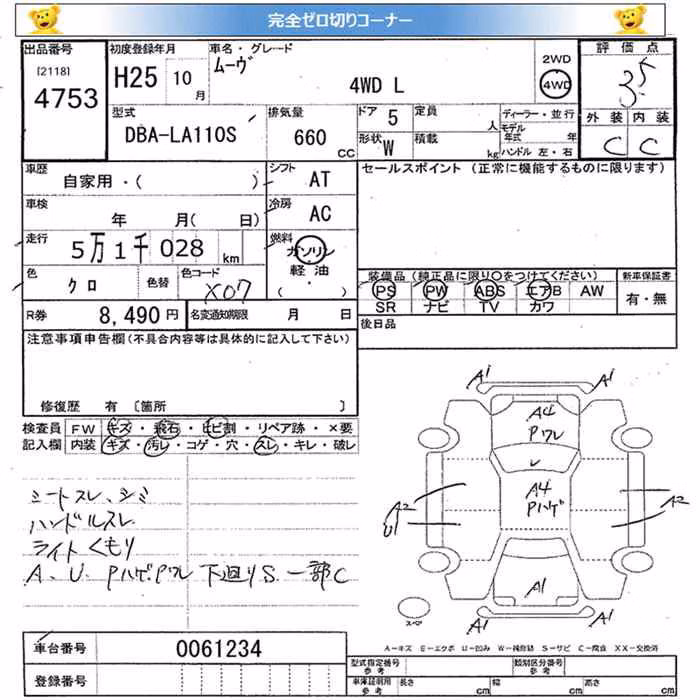 完全ゼロ切りコーナー
出品番号
[2118]
4753
初度登録年月
H25 10 月
車名・グレード
ムーヴ
4WD L
2WD
4WD
評価点
3.5
外装 内装
C C
型式
DBA-LA110S
排気量
660 CC
ドア 5
形状 W
定員 人
積載 kg
ディーラー・並行
モデル年式 年
ハンドル 左・右
車歴
自家用・( )
シフト AT
車検
年 月( 日)
冷房 AC
走行
5万1千028 km
燃料
ガソリン
軽油
( )
色
クロ
色替
色コード
X07
R券 8,490 円
名変通知期限 月 日
セールスポイント (正常に機能するものに限ります)
装備品 (純正品に限り○をつけてください)
PS PW ABS エアB AW
SR ナビ TV カワ
新車保証書
有・無
後日品
注意事項申告欄(不具合内容等は具体的に記入して下さい)
修復歴 有 〔箇所 〕
検査員記入欄
FW キズ・飛石・ヒビ割・リペア跡・×要
内装 キズ・汚レ・コゲ・穴・スレ・キレ・破レ
シートスレ、シミ
ハンドルスレ
ライトくもり
A、U、Pハゲ、Pワレ 下廻りS 一部C
A1 A1
A4
Pワレ
レ
A4
Pハゲ
A2
U1
A2
A1
A1 A1
スペア
A-キズ E-エクボ U-凹み W-補修跡 S-サビ C-腐食 XX-交換済
車台番号 0061234
登録番号
型式指定番号 参考
類別区分番号 参考
車庫証明用 参考
長さ cm 幅 cm 高さ cm